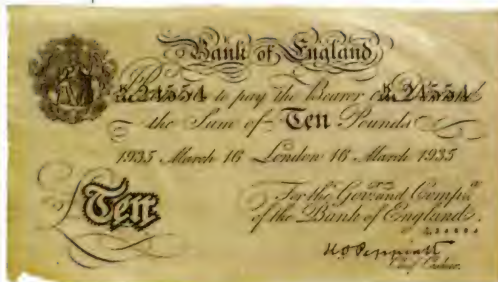 Bank of England
to pay the Bearer on Demand
24554
24554
the Sum of Ten Pounds
1935 March 16 London 16 March 1935
For the Govr. and Compa.
£Ten
of the Bank of England.
K O Peppiatt
Chief Cashier.